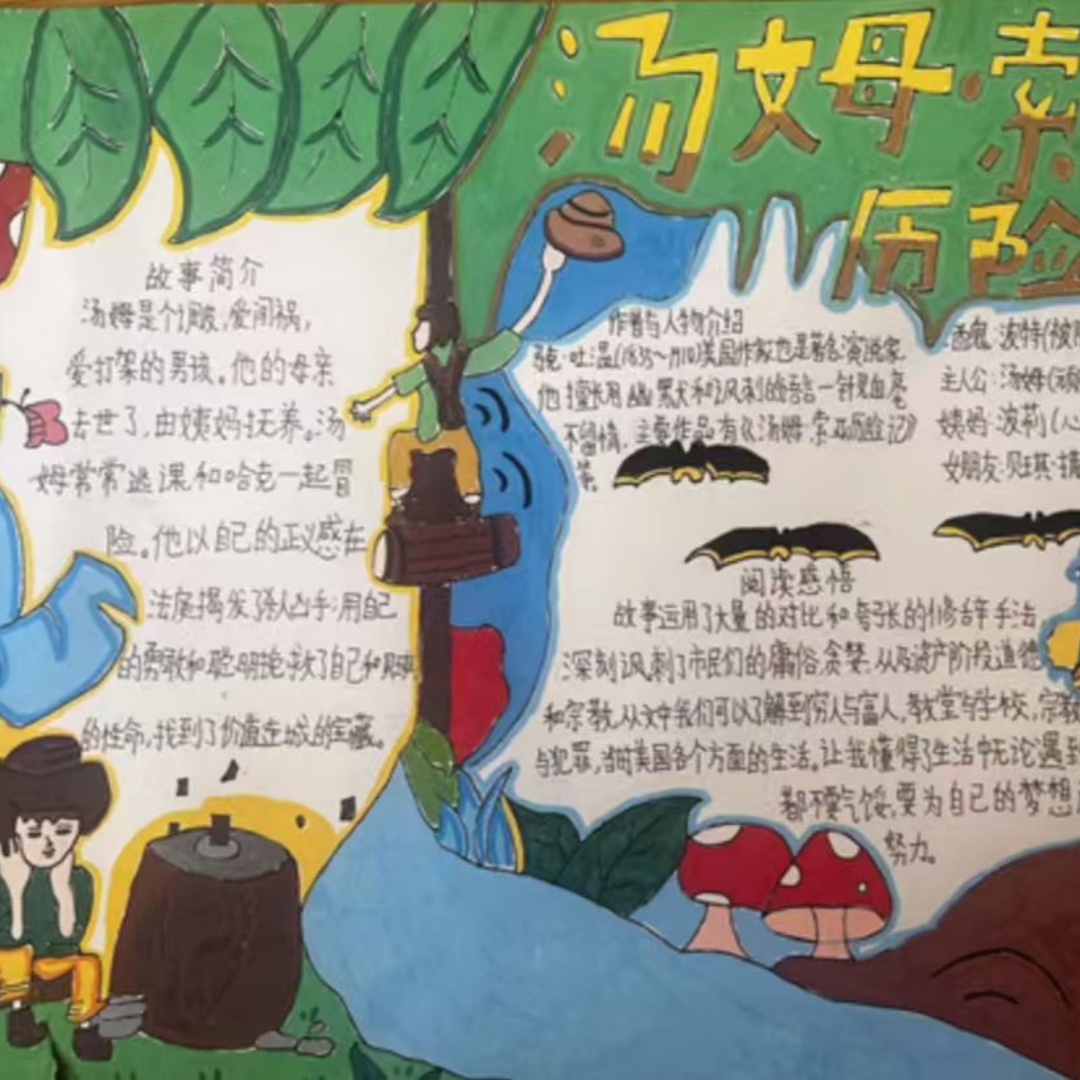 汤姆·索
历险
故事简介
汤姆是个顽皮,爱闯祸,
爱打架的男孩。他的母亲
去世了,由姨妈抚养。汤
姆常常逃课和哈克一起冒
险。他以自己的正义感在
法庭揭发了杀人凶手;用自己
的勇敢和聪明拯救了自己和贝琪
的性命,找到了价值连城的宝藏。
作者与人物介绍
马克·吐温(1835~1910)美国作家也是著名演说家.
他擅长用幽默和讽刺的语言一针见血毫
不留情.主要作品有《汤姆·索亚历险记》
等.
酒鬼:波特(被
主人公:汤姆(顽
姨妈:波莉(心
女朋友:贝琪·撒
阅读感悟
故事运用了大量的对比和夸张的修辞手法
深刻讽刺了市民们的庸俗贪婪,以及资产阶级道德
和宗教,从文中我们可以了解到穷人与富人,教堂与学校,宗教
与犯罪,当时美国各个方面的生活。让我懂得了生活中无论遇到
都不要气馁,要为自己的梦想
努力。